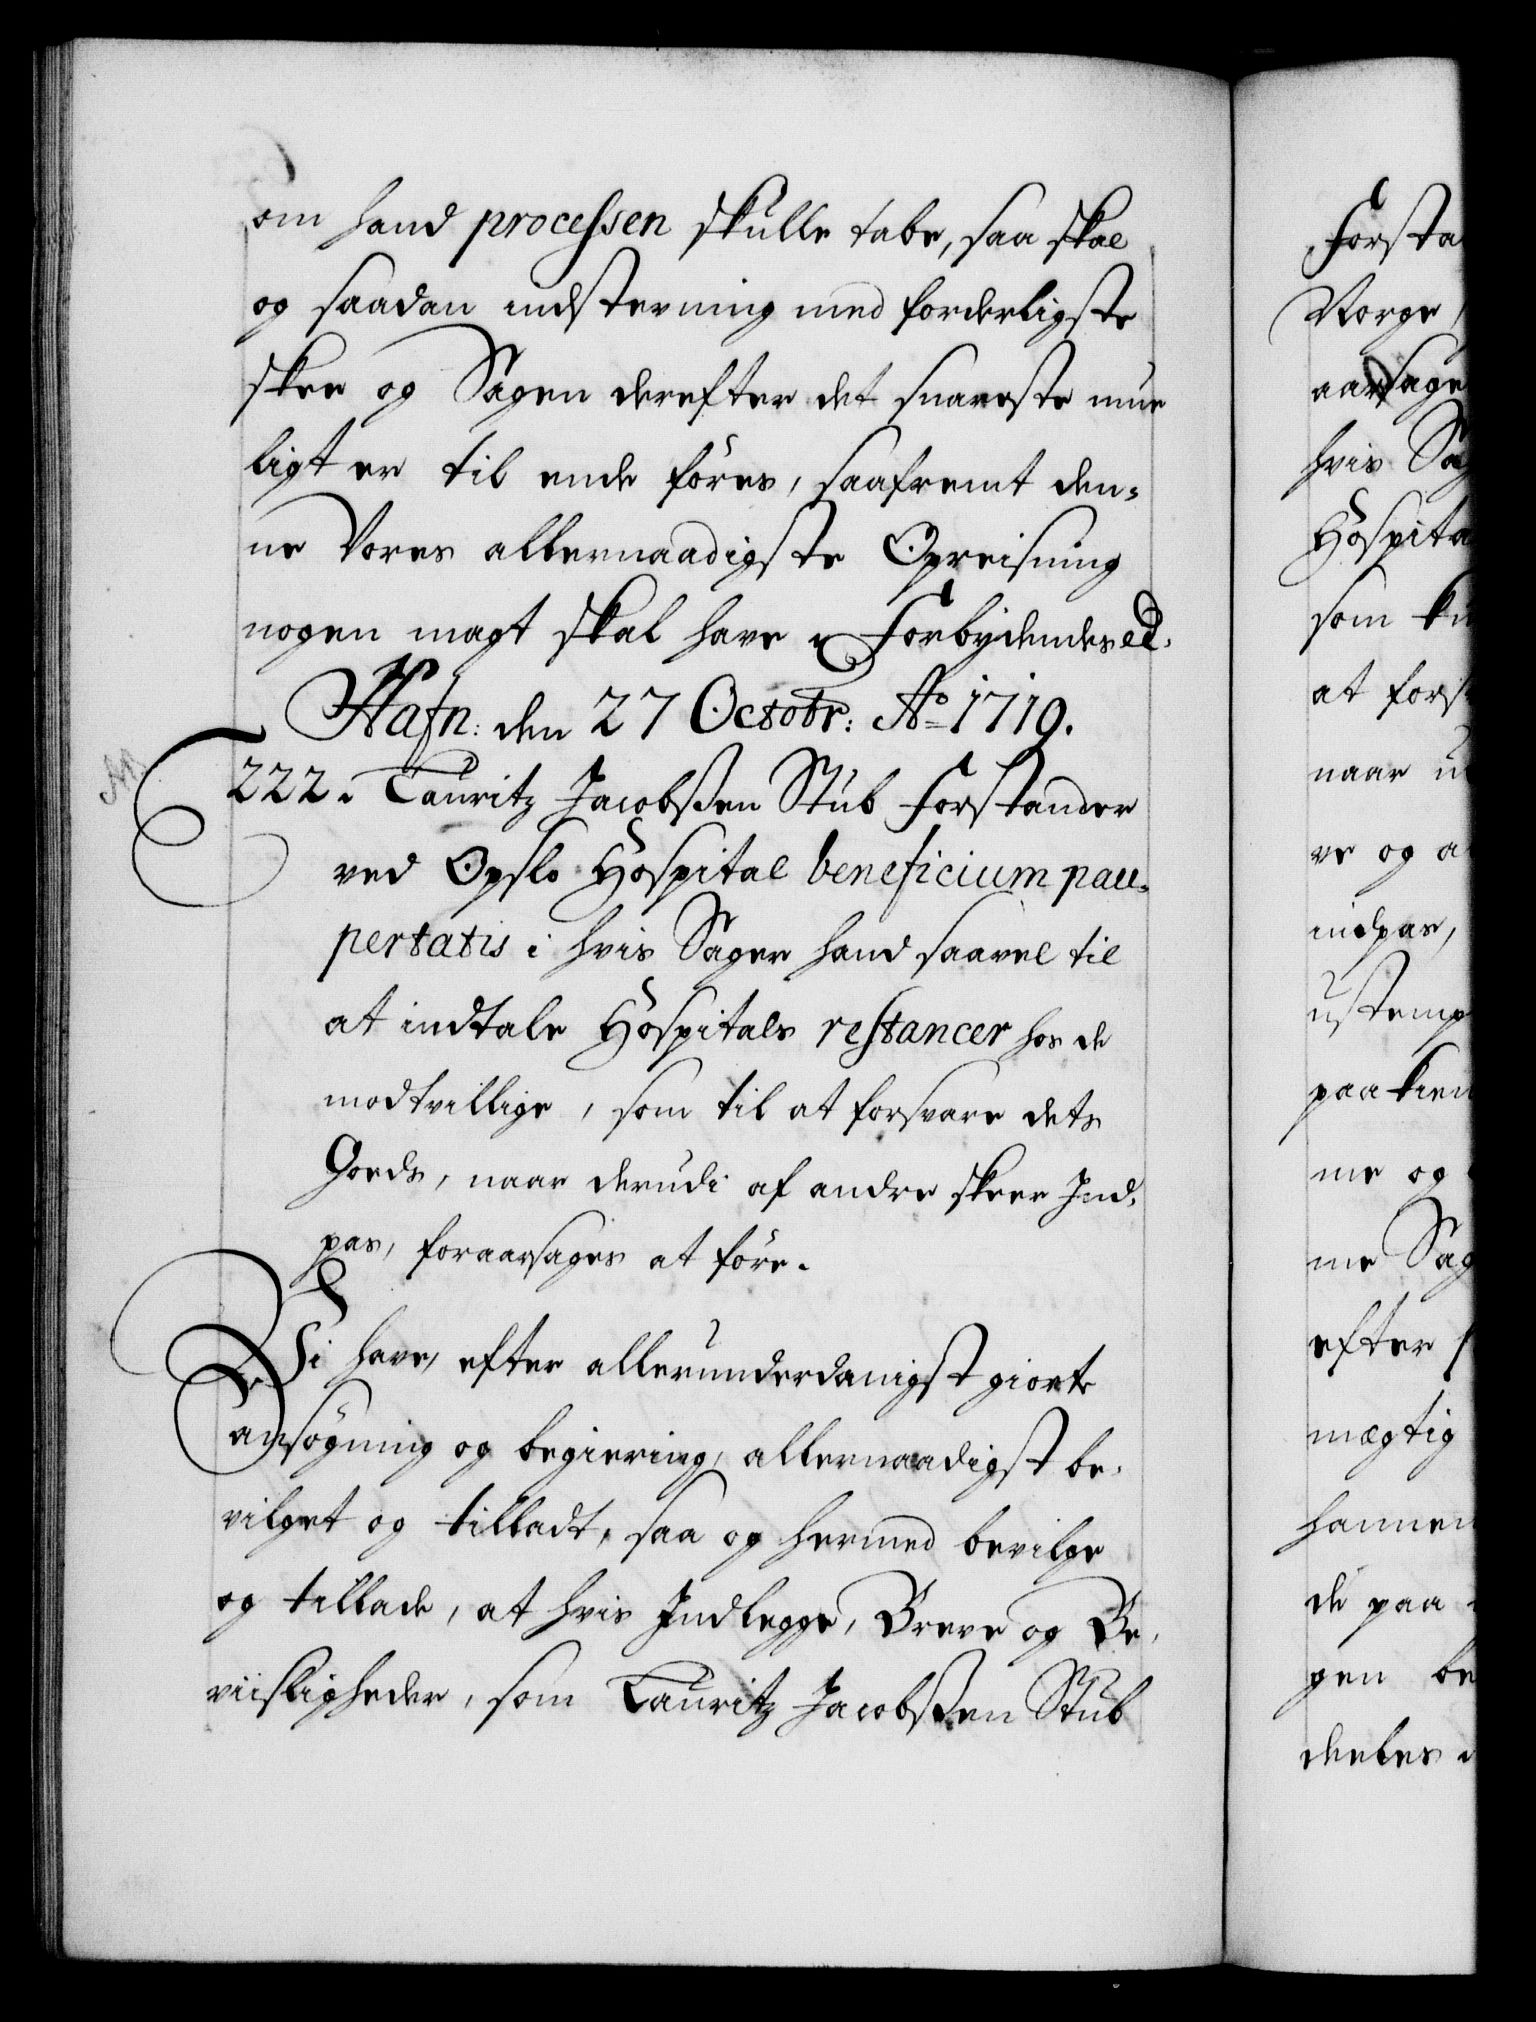 om hand processen skulle tabe, saa skal
og saadan indstevning med forderligste
skee og Sagen derefter det snareste mue
ligt er til ende föres, saafremt den-
ne Vores allernaadigste Opreisning
nogen magt skal have Forbydendes etc.
Hafn: den 27 Octobr: Ao 1719.
222. Lauritz Jacobssen Stub Forstander
ved Opslo Hospital beneficium pau-
pertatis i hvis Sager hand saavel til
at indtale Hospitals restancer hos de
modtvillige, som til at forsvare dets
Goeds, naar derudi af andre skeer Ind-
pas, foraarsages at före.
Vi have, efter allerunderdanigst giorte
ansögning og begiering, allernaadigst be-
vilget og tilladt, saa og hermed bevilge
og tillade, at hvis Indlegge, Breve og Be-
viisligheder, som Lauritz Jacobssen Stub
Forsta
Norge,
aarsage
hvis Sag
Hospita
som ku
at fors
naar u
ve og a
indpas,
ustemp
paa kien
me og
me Sag
efter
mægtig
hannem
de paa
gen be
deeles